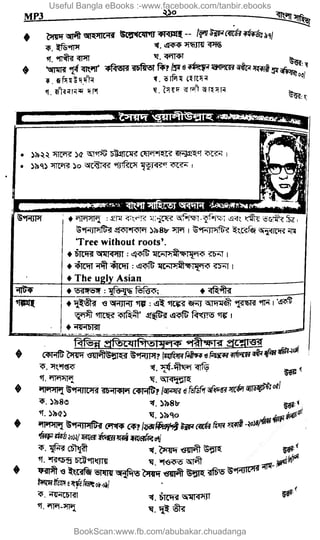 Useful Bangla eBooks :-www.facebook.com/tanbir.ebooks
MP3 ২১০ বাংলা সাহিত্য
♦ সৈয়দ আলী আহসানের উল্লেখযোগ্য কাব্যগ্রন্থ --
ক. ইতিহাস খ. একক সন্ধ্যায় বসন্ত
গ. পাখীর বাসা ঘ. বলাকা উত্তর: খ
♦ 'আমার পূর্ব বাংলা' কবিতার রচয়িতা কে?
গ. জীবনানন্দ দাশ ঘ. সৈয়দ আলী আহসান উত্তর: ঘ
সৈয়দ ওয়ালীউল্লাহ
• ১৯২২ সালের ১৫ আগস্ট চট্টগ্রামের ষোলশহরে জন্মগ্রহণ করেন।
• ১৯৭১ সালের ১০ অক্টোবর প্যারিসে মৃত্যুবরণ করেন।
বাংলা সাহিত্যে অবদান
উপন্যাস ♦ লালসালু :
উপন্যাসটির প্রকাশকাল ১৯৪৮ সাল। উপন্যাসটির ইংরেজি অনুবাদের নাম
'Tree without roots'.
♦ চাঁদের অমাবস্যা : একটি মনোসমীক্ষামূলক রচনা।
♦ কাঁদো নদী কাঁদো : একটি মনোসমীক্ষামূলক রচনা।
♦ The ugly Asian
নাটক ♦ তরঙ্গভঙ্গ : ♦ বহিপীর
গল্পগ্রন্থ ♦ দুইতীর ও অন্যান্য গল্প : এই গল্পের জন্য আদমজী পুরস্কার পান। 'একটি
তুলসী গাছের কাহিনী' গ্রন্থটির একটি বিখ্যাত গল্প।
♦ নয়নচারা
বিভিন্ন প্রতিযোগিতামূলক পরীক্ষার প্রশ্নোত্তর
♦ কোনটি সৈয়দ ওয়ালীউল্লাহর উপন্যাস?
ক. সংশপ্তক খ. সূর্য-দীঘল বাড়ি
গ. লালসালু ঘ. আবদুল্লাহ উত্তর: গ
♦ লালসালু উপন্যাসের রচনাকাল কোনটি?
ক. ১৯৪৫ খ. ১৯৪৮
গ. ১৯৫১ ঘ. ১৯৭০ উত্তর: খ
♦ লালসালু উপন্যাসটির লেখক কে?
ক. মুনির চৌধুরী খ. সৈয়দ ওয়ালী উল্লাহ
গ. শরৎচন্দ্র চট্টোপাধ্যায় ঘ. শওকত আলী উত্তর: খ
♦ ফরাসী ও ইংরেজি ভাষায় অনূদিত সৈয়দ ওয়ালী উল্লাহ রচিত উপন্যাসের নাম-
ক. নয়নচারা খ. চাঁদের অমাবস্যা
গ. লাল-সালু ঘ. দুই তীর
BookScan:www.fb.com/abubakar.chuadanga